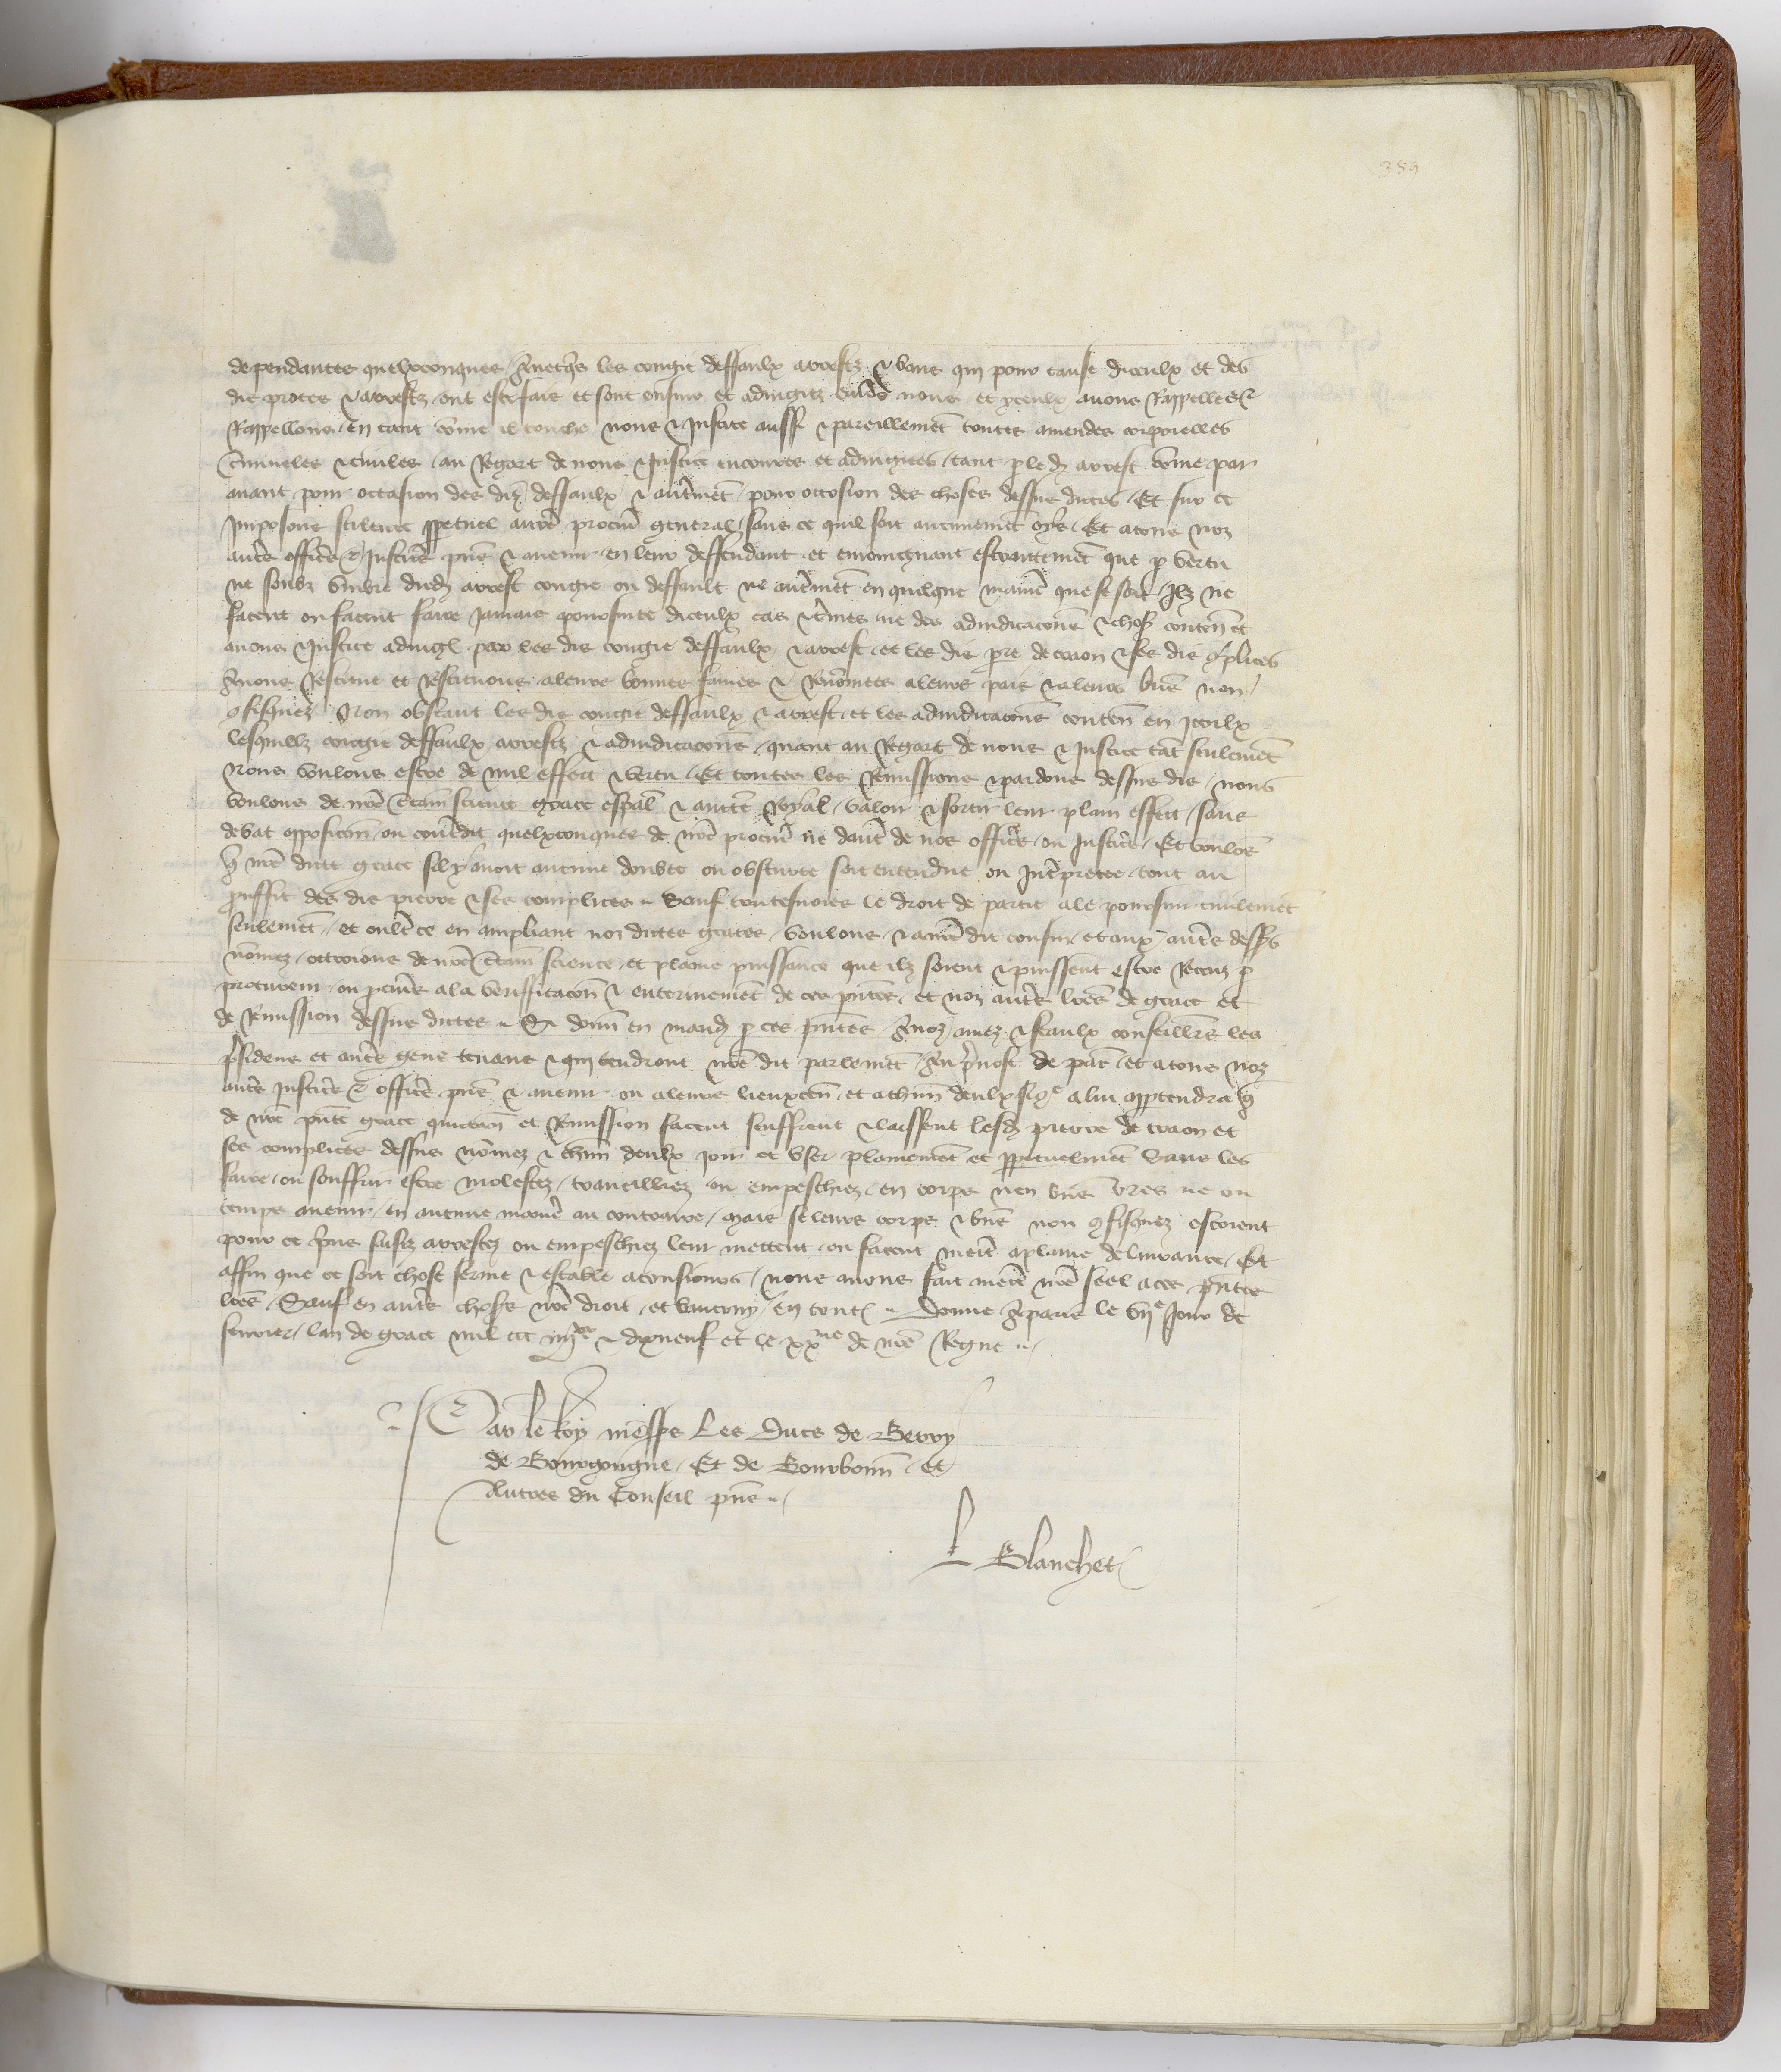 389
dependantes quelxconques / Avecqs les congie deffaulx arrestz & bans qui pour cause diceulx et des
dis proces & arrestz ont este fais et sont ensuiz et adiugiez envs nous et yceulx avons Rappelles &
Rappellons / en tant cõme il touche nous & Justice aussi & pareillemēt toutes amendes corporelles
Crimineles & civiles / au Regart de nous & Justice encourues et adiugiees / tant p led arrest cõme par
avant pour occasion des diz deffaulx & autmēt / pour occasion des choses dessus dictes / Et sur ce
Imposons scilence ppetuel a nrē procur general / sans ce quil soit aucunemēt oy / Et a tous noz
autres officrs & Justicrs pñs & avenir en leur deffendant et enioignant estroittemēt que p vertu
ne soubz vmbre dud arrest congie ou deffault ne autmēt en quelque manie que se soit / Ilz ne
facent ou facent faire Jamais poursuite diceulx cas & crimes ne des adiudicacōns & choses conten et
avons & Justice adiugl par les dis congie deffaulx & arrest / et les dis prē de craon & ses dis cplices
Avons Restitue et Restituons a leurs bonnes fames & Renōmees a leurs pais & a leurs bñs non
cfisquez / Non obstant les dis congie deffaulx & arrest et les adiudicacōns conten en yceulx
lesquelz congie deffaulx arrestz & adiudicacōns / quant au Regart de nous & Justice tāt seulemēt
Nous voulons estre de nul effect & vertu / Et toutes les Remissions & pardons dessus dis / nous
voulons de nrē Ctain science grace espal & auctē Royal / valoir & sortir leur plain effect / sans
debat opposicōn ou contredit quelxconques de nrē procur ne dautrē de nos officrs ou Justicrs / Et voulōs
q nrē dicte grace sil y avoit aucune doubte ou obscurte soit entendue ou Intpretee tout au
prouffit des dis pierre & ses complices .. Sauf toutesvoies le droit de partie a le poursuir civilemēt
seulemēt / et oultre ce en ampliant noz dictes graces / voulons & a nrē dit cousin / et aux autres dessus
nōmez / octroions de nrē Ctain science / et plaine puissance que ilz soient & puissent estre Receuz p
procureur ou pcureurs a la verifficacōn & enterinemēt de ces pñtes / et noz autres lrēs de grace et
de Remission dessus dictes .. Si donn en mand p ces pñtes / A noz amez & feaulx conseillrs les
psidens et autres gens tenans & qui tendront nrē dit parlemēt / Au pvost de paris / et a tous noz
autres Justicrs & officrs pñs & avenir ou a leurs lieuxten / et a chūn deulx sicē a lui appartendra q
de nrē pñte grace quittacōn et Remission facent seuffrent & laissent lesd pierre de craon et
ses complices dessus nōmez & chūn deulx Joir et vser plainemēt et ppetuelmēt Sans les
faire ou souffrir estre molestez / travailliez ou empeschiez / en corps nen biens ores ne ou
temps avenir / en aucune manie au contraire / Mais se leurs corps & bñs non cfisquez estoient
pour ce pris saisiz arrestez ou empeschiez leur mettent ou facent mettre a plaine delivrance / Et
affin que ce soit chose ferme & estable a tousiours / nous avons fait mettre nrē seel a ces pñtes
lrēs / Sauf en autres choses nrē droit / et lautruy / En toutes .. Donne A paris le vije Jour de
fevrier / lan de grace mil ccc iiijxx & dixneuf et le xxme de nrē Regne ..
Par le Roy messrs Les Ducs de Berry
de Bourgongne / Et de Bourbonn / et
Autres du Conseil pñs ..
L Blanchet